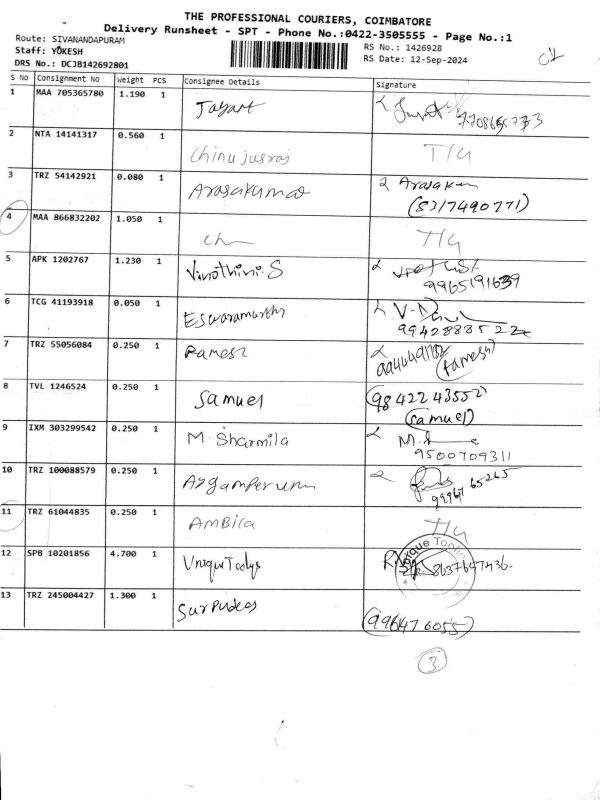 THE PROFESSIONAL COURIERS, COIMBATORE
Delivery Runsheet - SPT - Phone No.:0422-3505555 - Page No.:1
Route: SIVANANDAPURAM
RS No.: 1426928
Staff: YOKESH
RS Date: 12-Sep-2024
DRS No.: DCJB142692801
S NO Consignment No Weight PCS Consignee Details Signature
1 MAA 705365780 1.190 1
2 NTA 14141317 0.560 1 T/G
3 TRZ 54142921 0.080 1 Arasakumar Arasakum
(8317490771)
4 MAA 866832202 1.050 1 T/G
5 APK 1202767 1.230 1 Vinothini.S
9965191639
6 TCG 41193918 0.050 1 Eswaramurthi
7 TRZ 55056084 0.250 1 Ramesh
(Ramesh)
8 TVL 1246524 0.250 1 Samuel (9842243552)
(Samuel)
9 IXM 303299542 0.250 1 M. Sharmila
9500709311
10 TRZ 100088579 0.250 1
11 TRZ 61044835 0.250 1 AMBICA T/G
12 SPB 10201856 4.700 1 8637647436
13 TRZ 245004427 1.300 1
(996476055)
3